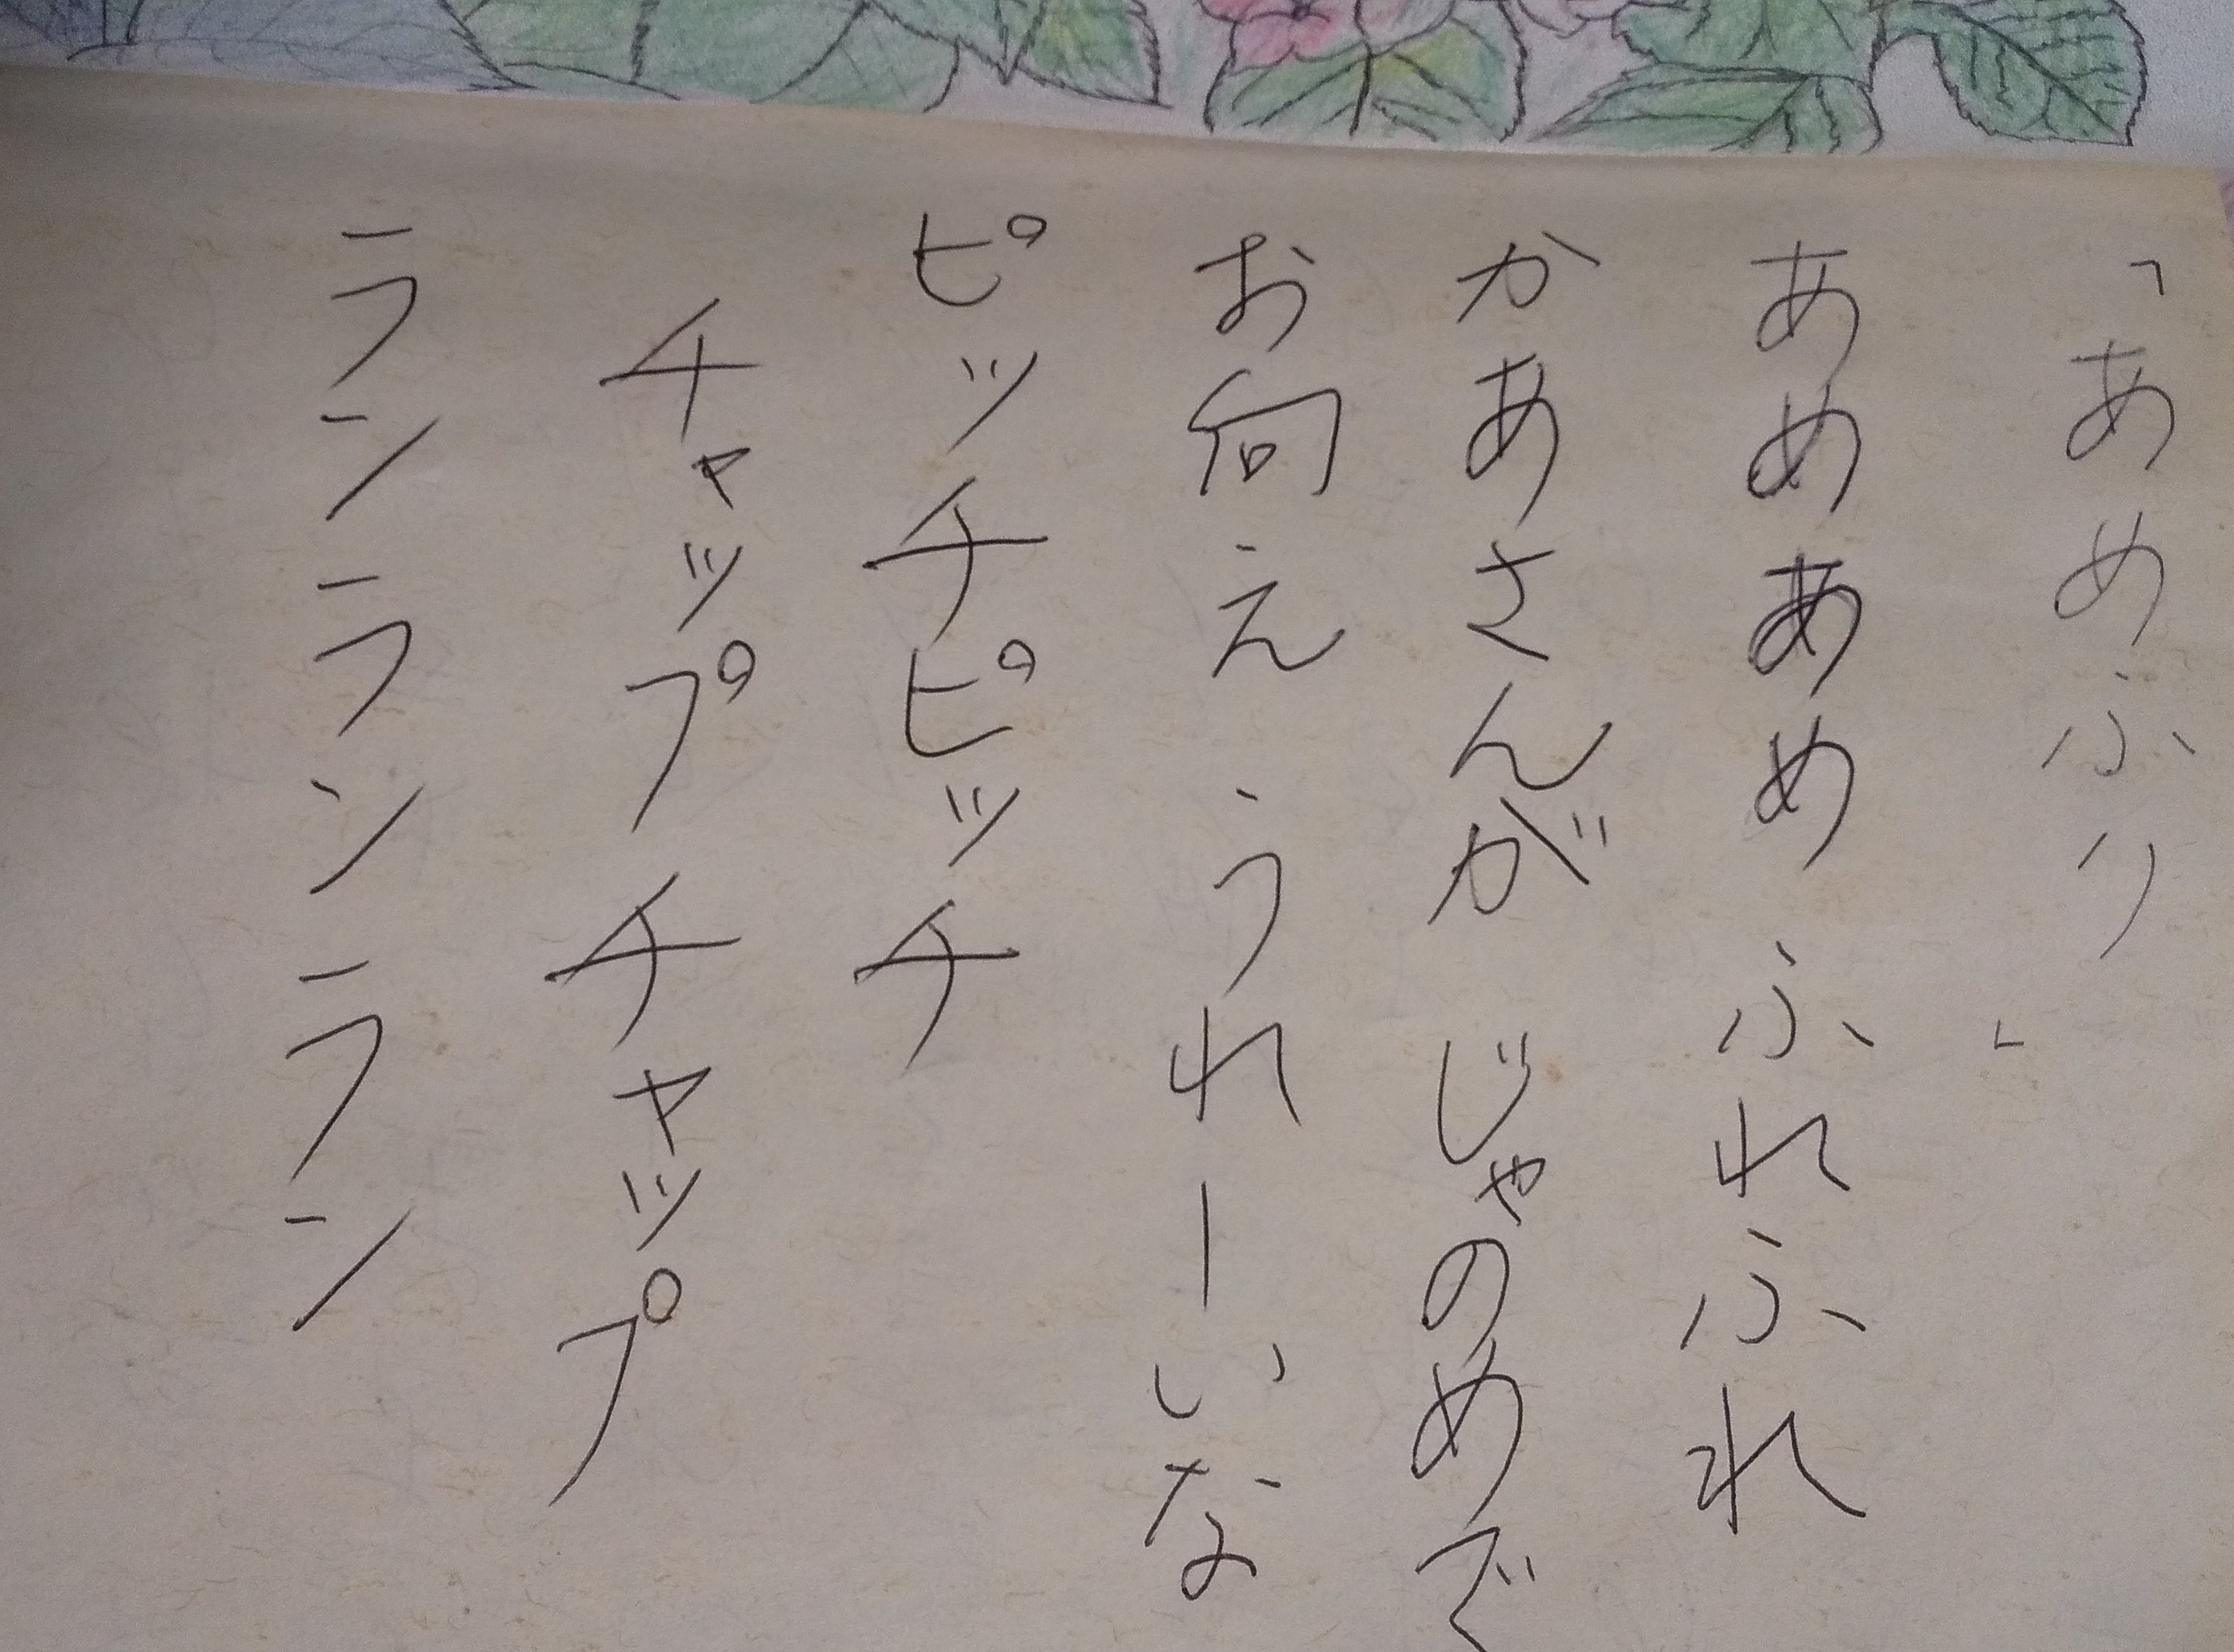 「あめふり」
あめあめ ふれふれ
かあさんが じゃのめで
お向え うれーいな
ピッチピッチ
チャップチャップ
ランランラン